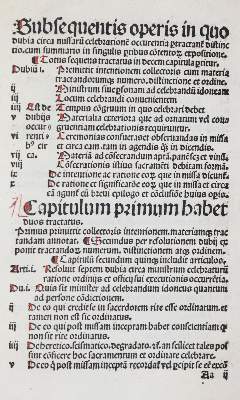 Subsequentis operis in quo
dubia circa missarū celebrationē occurentia ꝑtractant̃ distinc
tio. cum summario in singulis pribus cōtentoꝝ expositione.
Totus sequens tractatus in decem capitula ꝑtitur.
Dubiū i. Primitit intentionem collectoris cum materia
tractandorumqꝫ numero. distinctione et ordine.
ij Ministrum suepsonam ad celebrandū idoneam
iij Locum celebratiōi convenientem
iiij Est de Tempus cōgruum in quo celebrari debet.
v dubijs Materialia exteriora que ad ornatum vel cons
occurr gruentiam celebrationis requiruntur.
vi renti Cerimonias conseruatōes obseruandas in missa
viij et circa eam. tam in agendis qꝫ in dicendis.
vij ca. Materiā ad cōsecrandum
viij Cōsecrationis istius sacramēti debitam formā.
ix De intentione ac ratione eorum que in missa dicunt̃.
x De ratione et significatiōe eorum que in missa et circa
eā agunt̃ cū brevi epilogo et cōclusiōe huius opis.
Capitulum primum habet
duos tractatus.
Primus primitit collectoris intentionem. materiamqꝫ trac
tandam annotat. Secundus per resolutionem dubij ex
ponit tractandoꝝ numerum. distinctionem atqꝫ ordinem.
Capitulū secundum quinqꝫ includit articulos.
Arti. i. Resoluit septem dubia circa ministrum celebraturū
ratione ordinis et officij sui executionis occurrētia.
Du. i. Quis sit minister ad celebrandum idoneus quantum
ad persone cōdictionem.
ij De eo qui credit se in sacerdotem rite esse ordinatum. et
tamen non est sic ordinatus.
iij De eo qui post missam inceptam habet conscientiam qꝫ
non sit rite ordinatus.
iiij De heretico. scismatico. degradato. rc̄. an scilicet tales pos
sint cōficere hoc sacramentum et ordinate celebrare.
v De eo qͥ post missam inceptā recordat̃
Aa ij